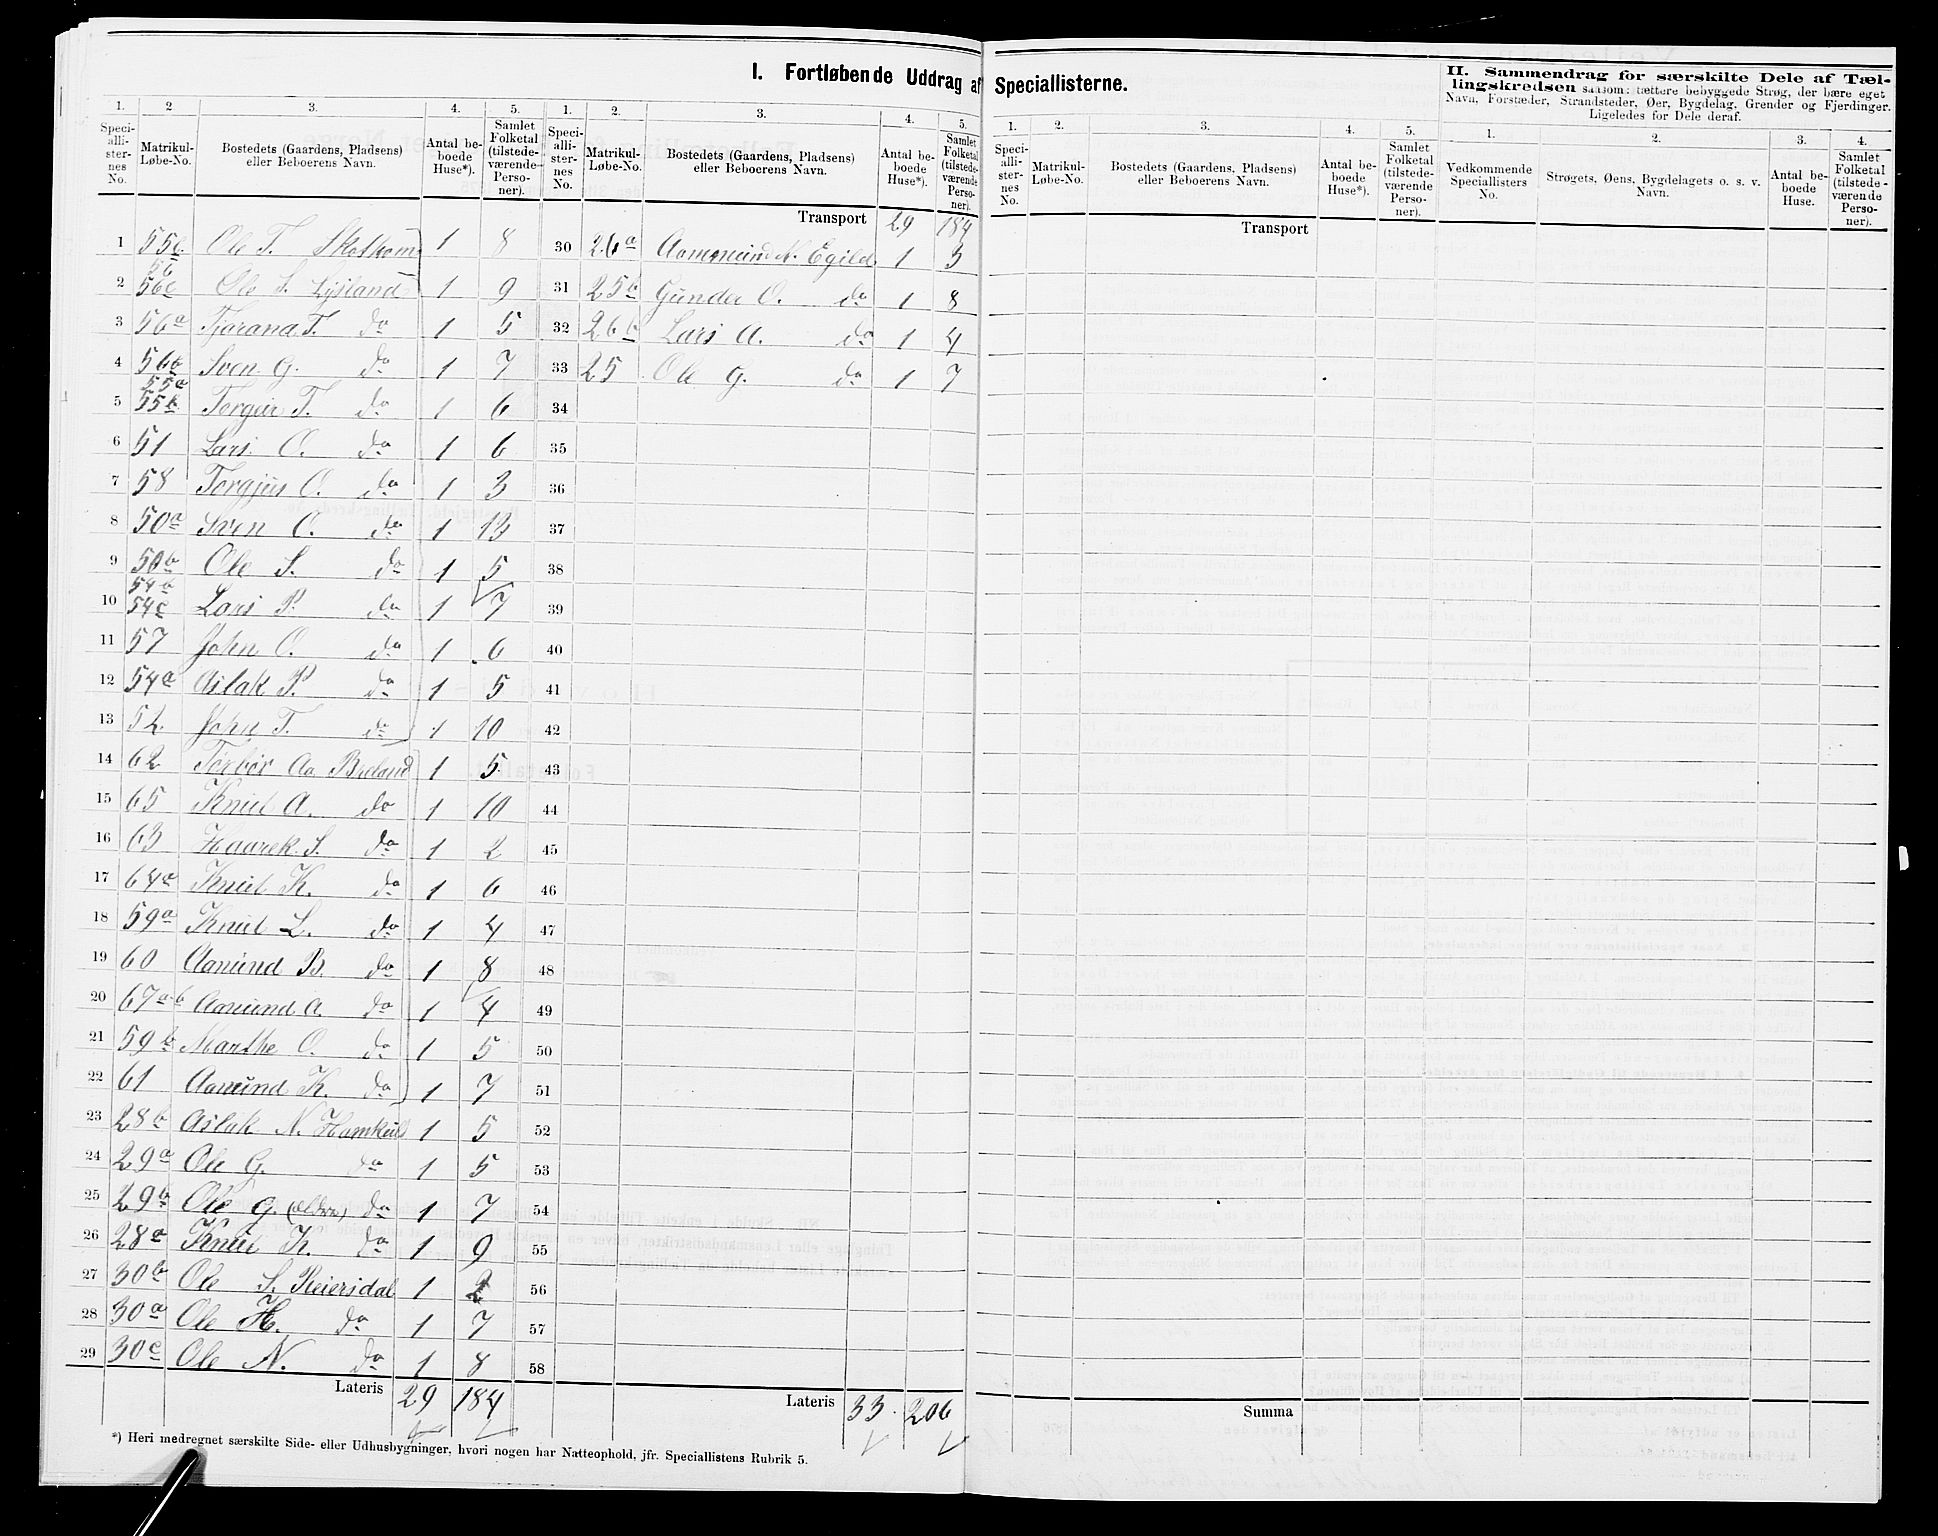 I. Fortløbende Uddrag af Speciallisterne.
II. Sammendrag for særskilte Dele af Tæl-
lingskredsen saasom: tættere bebyggede Strøg, der bære eget
Navn, Forstæder, Strandsteder, Øer, Bygdelag, Grender og Fjerdinger.
Ligeledes for Dele deraf.
1. 2. 3. 4. 5.
Speci-alli-ster-nes No. Matrikul-Løbe-No. Bostedets (Gaardens, Pladsens) eller Beboerens Navn. Antal be-boede Huse*). Samlet Folketal (tilstede-værende Perso-ner).
1 55c 56 Ole T. Skotkom 1 8
2 56c Ole S. Lysland 1 9
3 56a T. do 1 5
4 56b Sven G. do 1 7
5 55a 55b Torgiu T. do 1 6
6 51 Lars O. do 1 6
7 58 Torgjus O. do 1 3
8 50a Sven O. do 1 13
9 50b Ole S. do 1 5
10 54b 54c Lars P. do 1 7
11 57 John O. do 1 6
12 54a Aslak P. do 1 5
13 52 John T. do 1 10
14 62 Torbør Aa. Breland 1 5
15 65 Knut A. do 1 10
16 63 Haarek S. do 1 2
17 64a Knut K. do 1 6
18 59a Knut L. do 1 4
19 60 Aanund B. do 1 8
20 67a.b Aanund A. do 1 4
21 59b Marthe O. do 1 5
22 61 Aanund K. do 1 7
23 28b Aslak N. Homkuls 1 5
24 29a Ole G. do 1 5
25 29b Ole G. (ældre) do 1 7
26 28a Knut K. do 1 9
27 30b Ole S. Reiersdal 1 2
28 30a Ole H. do 1 7
29 30c Ole N. do 1 8
Lateris 29 184
1. 2. 3. 4. 5.
Speci-alli-ster-nes No. Matrikul-Løbe-No. Bostedets (Gaardens, Pladsens) eller Beboerens Navn. Antal be-boede Huse*). Samlet Folketal (tilstede-værende Perso-ner).
Transport 29 184
30 26a Aammund N. Egild 1 3
31 25b Gunder O. do 1 8
32 26b Lars A. do 1 4
33 25 Ole G. do 1 7
34
35
36
37
38
39
40
41
42
43
44
45
46
47
48
49
50
51
52
53
54
55
56
57
58
Lateris 33 206
*) Heri medregnet særskilte Side- eller Udhusbygninger, hvori nogen har Natteophold, jfr. Speciallistens Rubrik 5.
1. 2. 3. 4. 5.
Speci-alli-ster-nes No. Matrikul-Løbe-No. Bostedets (Gaardens, Pladsens) eller Beboerens Navn. Antal be-boede Huse*). Samlet Folketal (tilstede-værende Perso-ner).
Transport
Summa
1. 2. 3. 4.
Vedkommende Speciallisters No. Strøgets, Øens, Bygdelagets o. s. v. Navn. Antal be-boede Huse. Samlet Folketal (tilstede-værende Perso-ner).